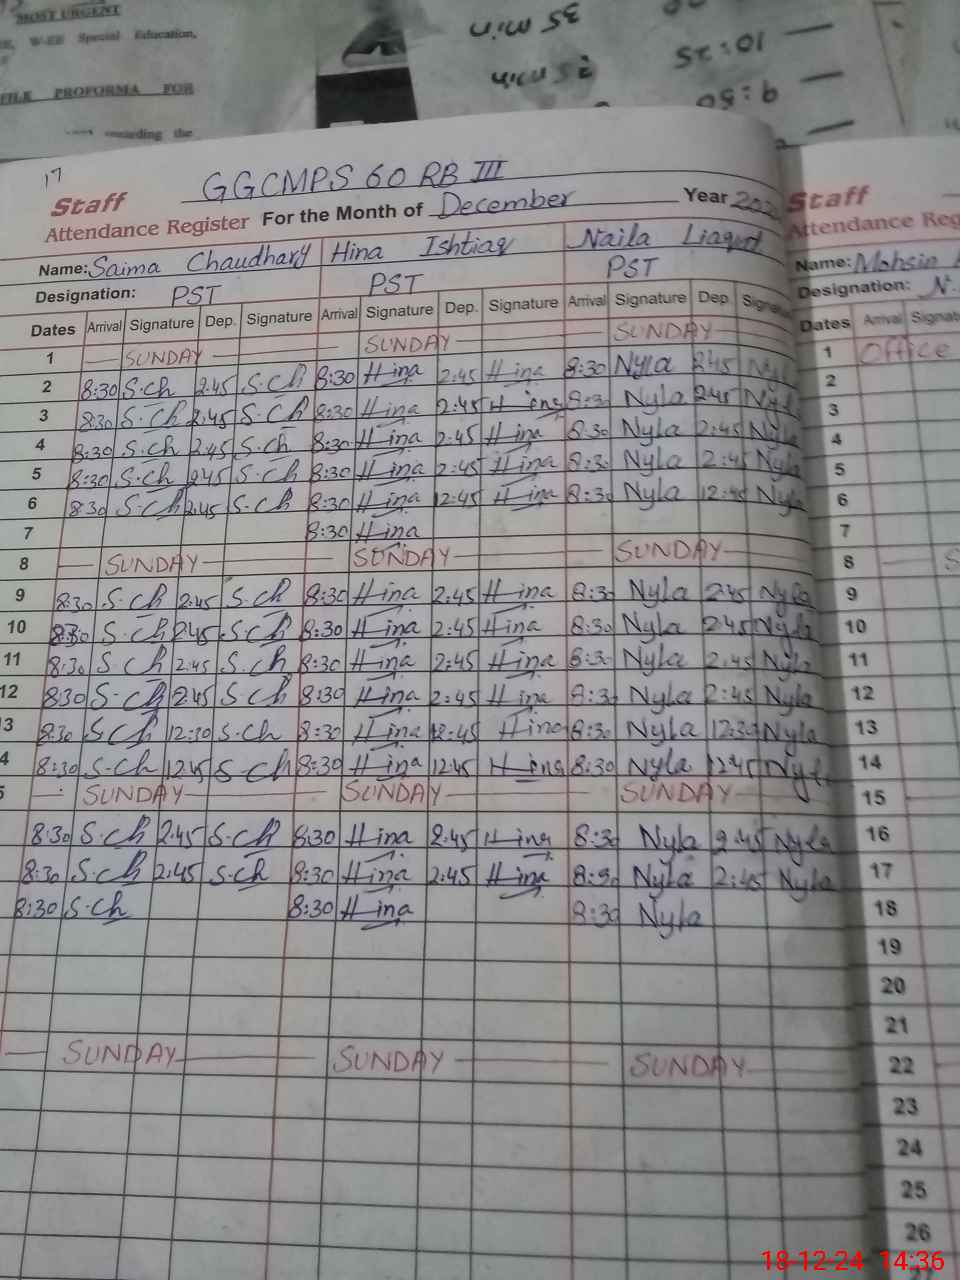 MOST URGENT
W-EE Special Education,
FILE PROFORMA FOR
regarding the
35 min
25 min
10:25
9:50
17
GGCMPS 60 RB III
Staff
Attendance Register For the Month of December Year
Name: Saima Chaudhary Hina Ishtiaq Naila Liaqut
Designation: PST PST PST
Dates Arrival Signature Dep. Signature Arrival Signature Dep. Signature Arrival Signature Dep. Signatu
1 SUNDAY SUNDAY SUNDAY
2 8:30 S.ch 2:45 S.ch 8:30 Hina 2:45 Hina 8:30 Nyla 2:45 Nyla
3 8:30 S.ch 2:45 S.ch 8:30 Hina 2:45 Hina 8:30 Nyla 2:45 Nyla
4 8:30 S.ch 2:45 S.ch 8:30 Hina 2:45 Hina 8:30 Nyla 2:45 Nyla
5 8:30 S.ch 2:45 S.ch 8:30 Hina 2:45 Hina 8:30 Nyla 2:45 Nyla
6 8:30 S.ch 2:45 S.ch 8:30 Hina 12:45 Hina 8:30 Nyla 12:45 Nyla
7 8:30 Hina
8 SUNDAY SUNDAY SUNDAY
9 8:30 S.ch 2:45 S.ch 8:30 Hina 2:45 Hina 8:30 Nyla 2:45 Nyla
10 8:30 S.ch 2:45 S.ch 8:30 Hina 2:45 Hina 8:30 Nyla 2:45 Nyla
11 8:30 S.ch 2:45 S.ch 8:30 Hina 2:45 Hina 8:30 Nyla 2:45 Nyla
12 8:30 S.ch 2:45 S.ch 8:30 Hina 2:45 Hina 8:30 Nyla 2:45 Nyla
3 8:30 S.ch 12:30 S.ch 8:30 Hina 12:45 Hina 8:30 Nyla 12:30 Nyla
4 8:30 S.ch 12:45 S.ch 8:30 Hina 12:45 Hina 8:30 Nyla 12:45 Nyla
5 SUNDAY SUNDAY SUNDAY
8:30 S.ch 2:45 S.ch 8:30 Hina 2:45 Hina 8:30 Nyla 2:45 Nyla
8:30 S.ch 2:45 S.ch 8:30 Hina 2:45 Hina 8:30 Nyla 2:45 Nyla
8:30 S.ch 8:30 Hina 8:30 Nyla
SUNDAY SUNDAY SUNDAY
Staff
Attendance Reg
Name: Mohsin
Designation: N.
Dates Arrival Signat
1 Office
2
3
4
5
6
7
8 S
9
10
11
12
13
14
15
16
17
18
19
20
21
22
23
24
25
26
18-12-24 14:36